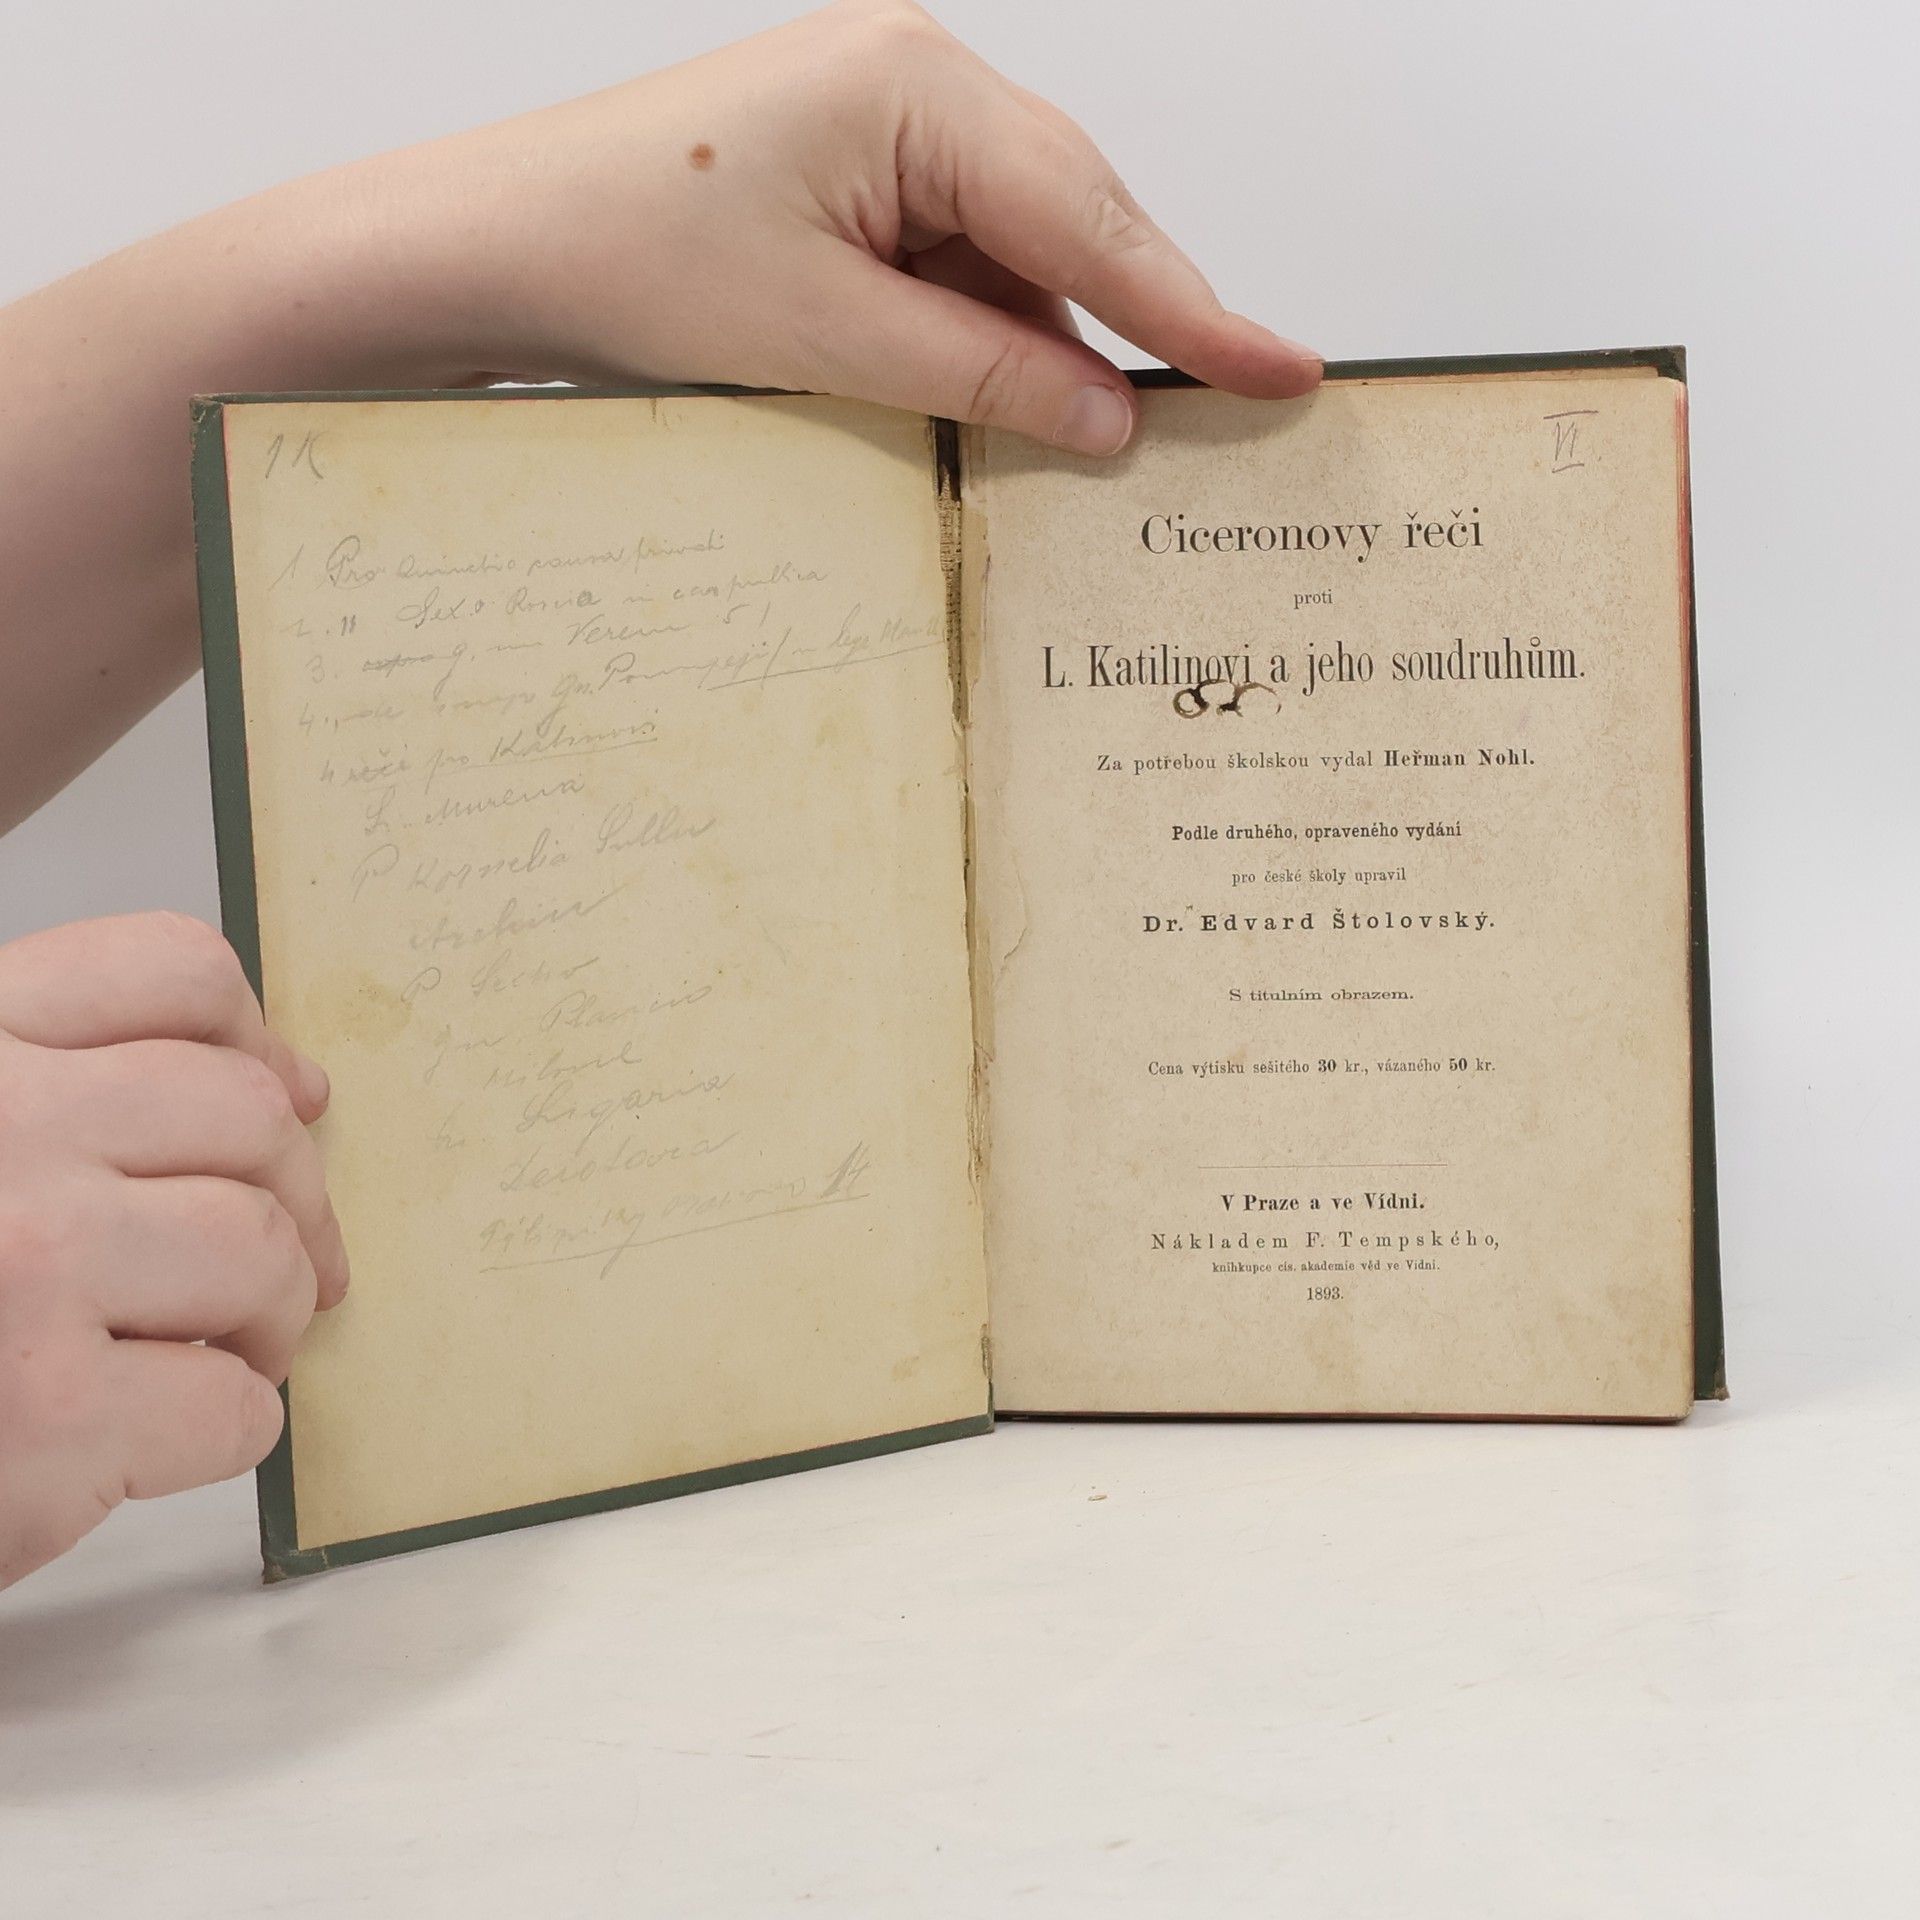 1 K
1 Pro Quinctio causa privati
2. " Sex. Roscia in
3. in Verem 5!
4. Gn. Pompeji
4 řeči pro Katinovi
L. Murena
P Kornelia Sulla
Archia
P Sestio
Gn Plancio
Milone
Ligaria
Deiotara
14
VI
Ciceronovy řeči
proti
L. Katilinovi a jeho soudruhům.
Za potřebou školskou vydal Heřman Nohl.
Podle druhého, opraveného vydání
pro české školy upravil
Dr. Edvard Štolovský.
S titulním obrazem.
Cena výtisku sešitého 30 kr., vázaného 50 kr.
V Praze a ve Vídni.
Nákladem F. Tempského,
knihkupce cís. akademie věd ve Vídni.
1893.